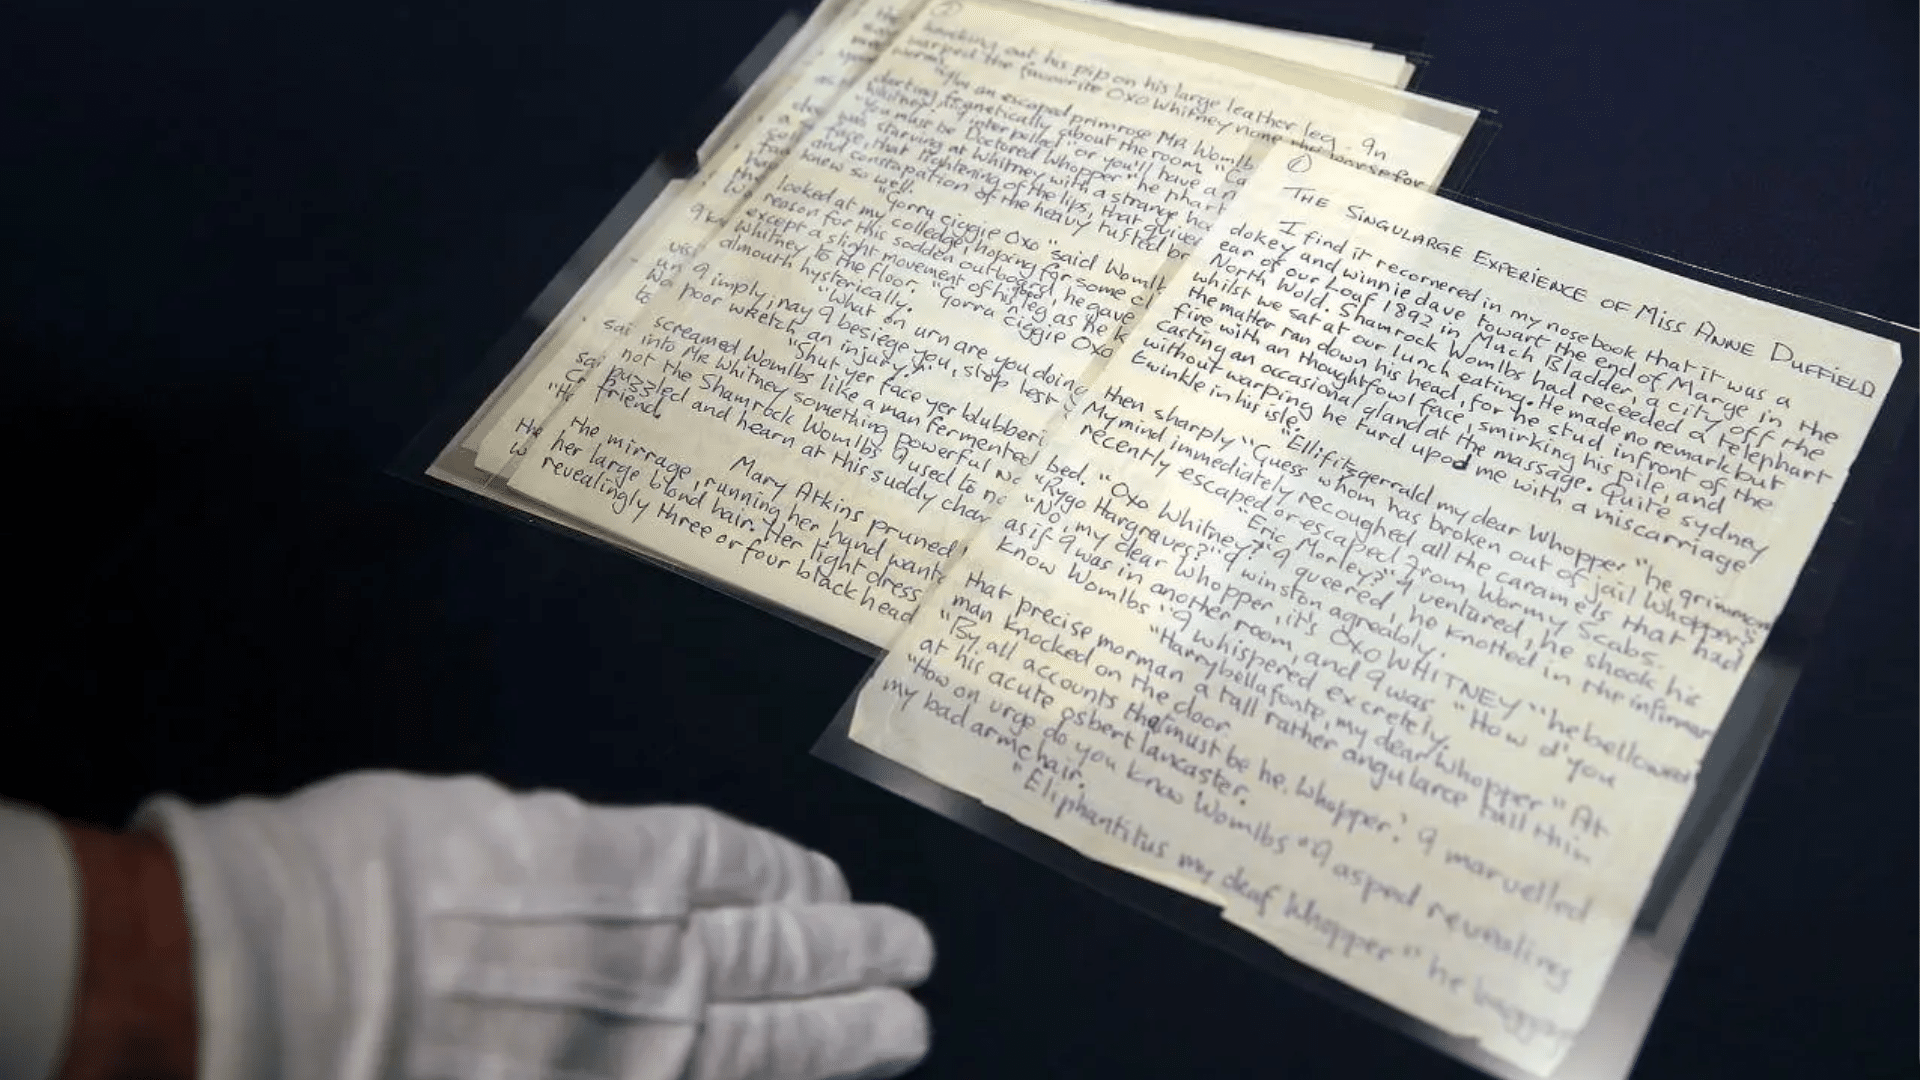 ①
THE SINGULARGE EXPERIENCE OF MISS ANNE DUFFIELD
I find it recornered in my nosebook that it was a
dokey and winnie dave towart the end of Marge in the
ear of our Loaf 1892 in Much Bladder, a city off the
North Wold. Shamrock Womlbs had receeded a telephart
whilst we sat at our lunch eating. He made no remark but
the matter ran down his head, for he stud infront of the
fire with an thoughtfowl face, smirking his pile, and
casting an occasional gland at the massage. Quite sydney
without warping he turd upod me with a miscarriage
twinkle in his isle.
"Ellifitzgerrald my dear Whopper" he grimmon
then sharply "Guess whom has broken out of jail Whopper?"
My mind immediately recoughed all the caramels that had
recently escaped or escaped from Wormy Scabs.
"Eric Morley?" I ventured, he shook his
bed. "Oxo Whitney?" I queered, he knotted in the infirmar
"Rygo Hargraves?" I winston agreably.
"No, my dear Whopper, it's OXO WHITNEY" he bellowed
as if I was in another room, and I was. "How d'you
know Womlbs" I whispered excretely.
"Harrybellafonte, my dear Whopper" At
that precise morman a tall rather angularce tall thin
man knocked on the door.
"By all accounts that must be he, Whopper." I marvelled
at his acute osbert lancaster.
"How on urge do you know Womlbs" I asped revealing
my bad armchair.
"Eliphantitus my deaf Whopper" he
②
knocking out his pip on his large leather leg. In
warped the favourite Oxo Whitney none the worse for
worms.
"I'm an escaped primrose Mr Womlb
darting frgnetically about the room. "Ca
Whitney" I interpolled "or you'll have a n
"You must be Doctored Whopper" he phart
was starving at Whitney with a strange ho
face, that tightening of the lips, that quiver
and constrapation of the heavy tufted br
knew so well.
"Gorra ciggie Oxo" said Womlb
looked at my colledge, hoping for some cl
reason for this sodden outboard, he gave
except a slight movement of his good leg as he k
Whitney to the floor. "Gorra ciggie Oxo
almouth hysterically.
"What on urn are you doing
I imply; nay I besiege you, stop lest
poor wretch an injury."
"Shut yer face yer blubberi
screamed Womlbs like a man fermented
into Mr Whitney something powerful
not the Shamrock Womlbs I used to
puzzled and hearn at this suddy char
friend.
Mary Atkins pruned
the mirrage, running her hand want
her large blond hair. Her tight dress
revealingly three or four blackhead